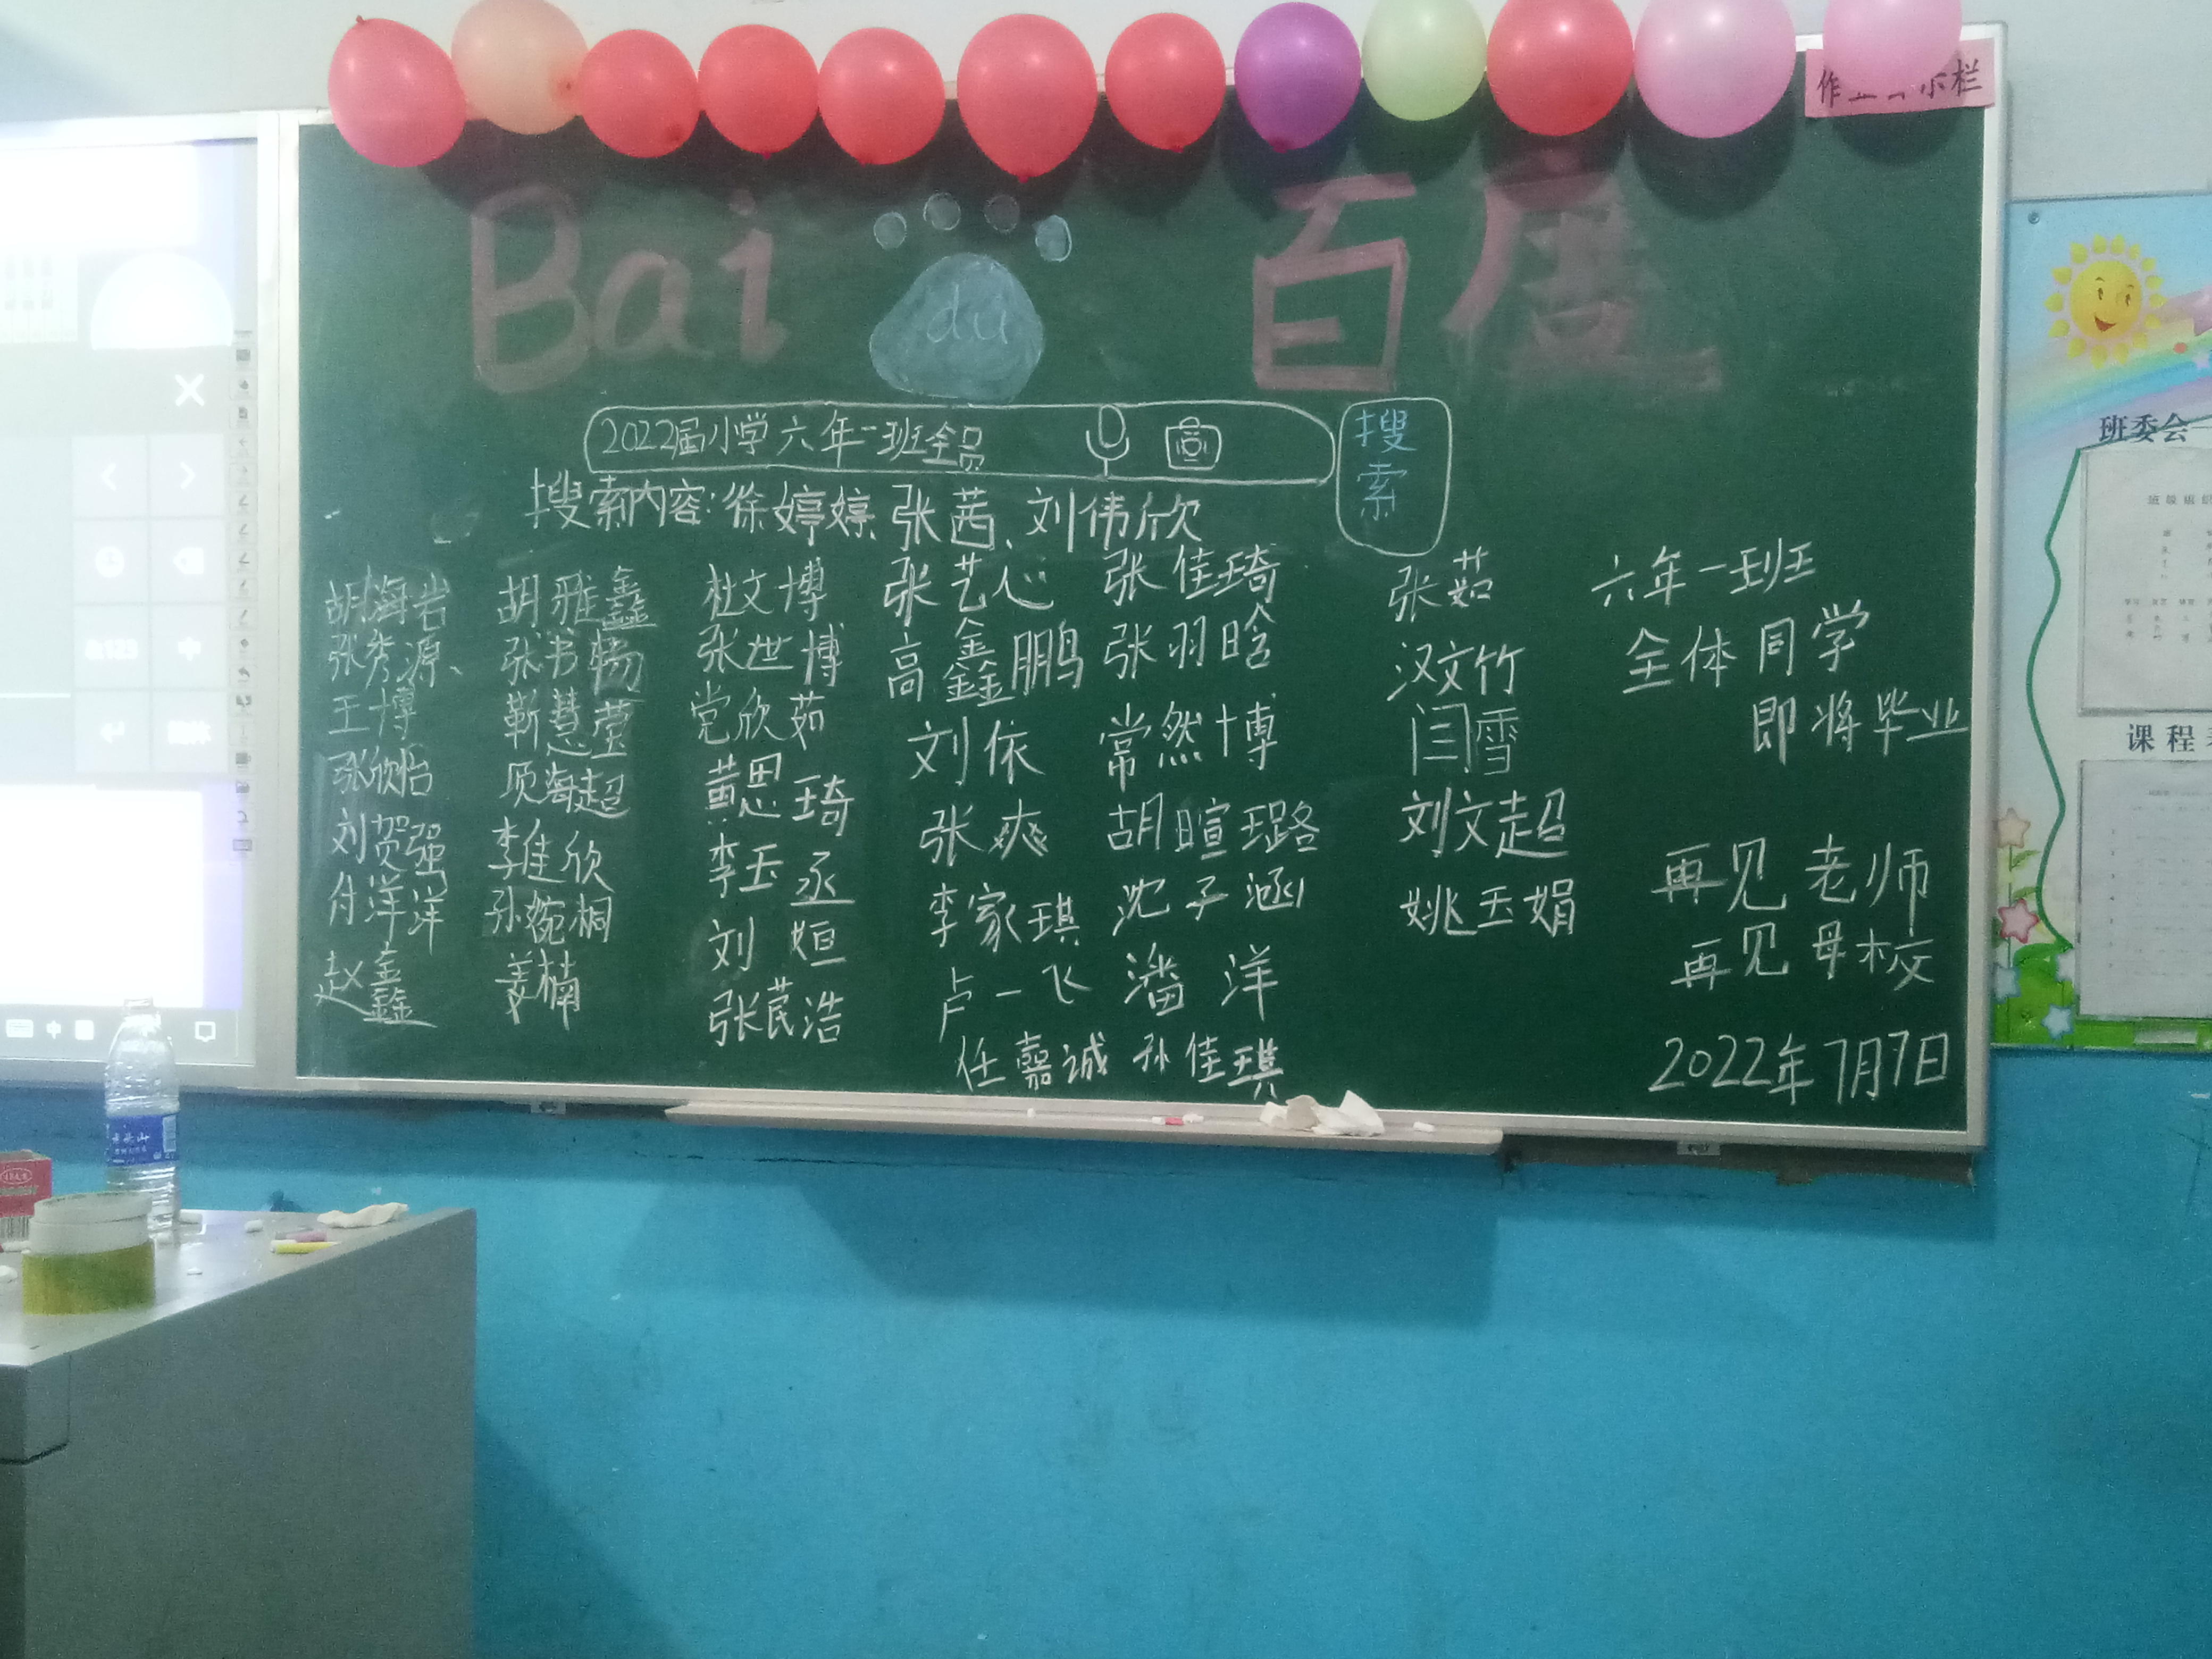 Bai du 百度
2022届小学六年一班全员
搜索
搜索内容:徐婷婷 张茜、刘伟欣
胡海岩
张秀源、
王博
张欣怡
刘贺强
付洋洋
赵鑫
胡雅鑫
张书畅
靳慧莹
项海超
李佳欣
孙婉桐
姜楠
杜文博
张世博
党欣茹
黄思琦
李玉丞
刘姮
张芪浩
张艺心
高鑫鹏
刘依
张爽
李家琪
卢一飞
任嘉诚
张佳琦
张羽晗
常然博
胡暄璐
沈子涵
潘洋
孙佳琪
张茹
汉文竹
闫雪
刘文超
姚玉娟
六年一班
全体同学
即将毕业
再见老师
再见母校
2022年7月7日
班委会
课程